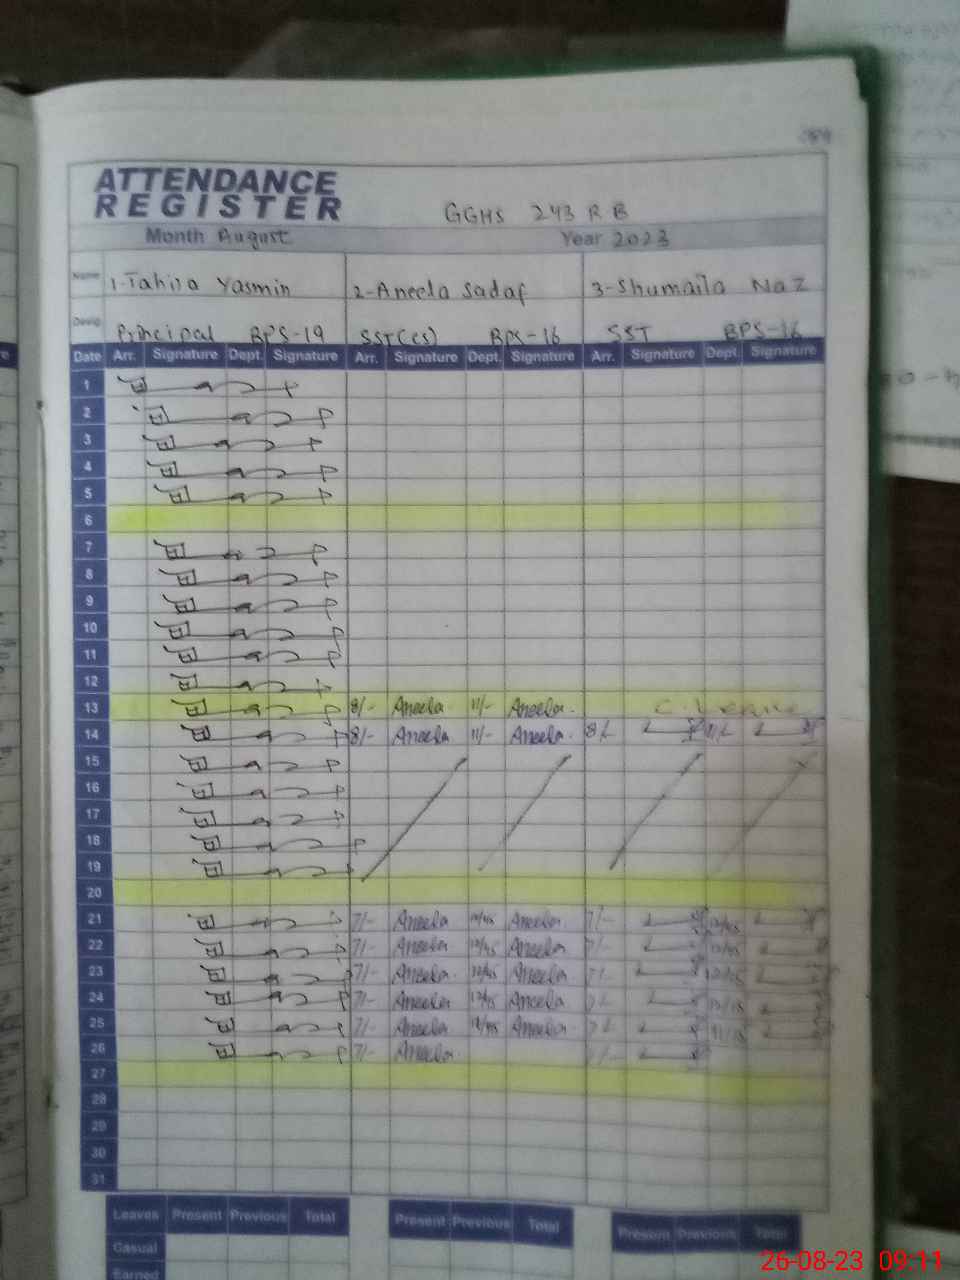 ATTENDANCE
REGISTER
GGHS 243 R B
Month August Year 2023
Name 1-Tahira Yasmin 2-Aneela Sadaf 3-Shumaila Naz
Desig. Principal BPS-19 SST(cs) BPS-16 SST BPS-16
Date Arr. Signature Dept. Signature Arr. Signature Dept. Signature Arr. Signature Dept. Signature
1
2
3
4
5
6
7
8
9
10
11
12
13 8/- Aneela 11/- Aneela.
14 8/- Aneela 11/- Aneela. 8/-
15
16
17
18
19
20
21 7/- Aneela 12/45 Aneela. 7/- 12/45
22 7/- Aneela 12/45 Aneela 7/- 12/45
23 7/- Aneela. 12/45 Aneela. 7/- 12/45
24 7/- Aneela 12/45 Aneela 12/45
25 7/- Aneela. Aneela.
26 7/- Aneela. 7/-
27
28
29
30
31
Leaves Present Previous Total Present Previous Total Present Previous Total
Casual
Earned
26-08-23 09:11